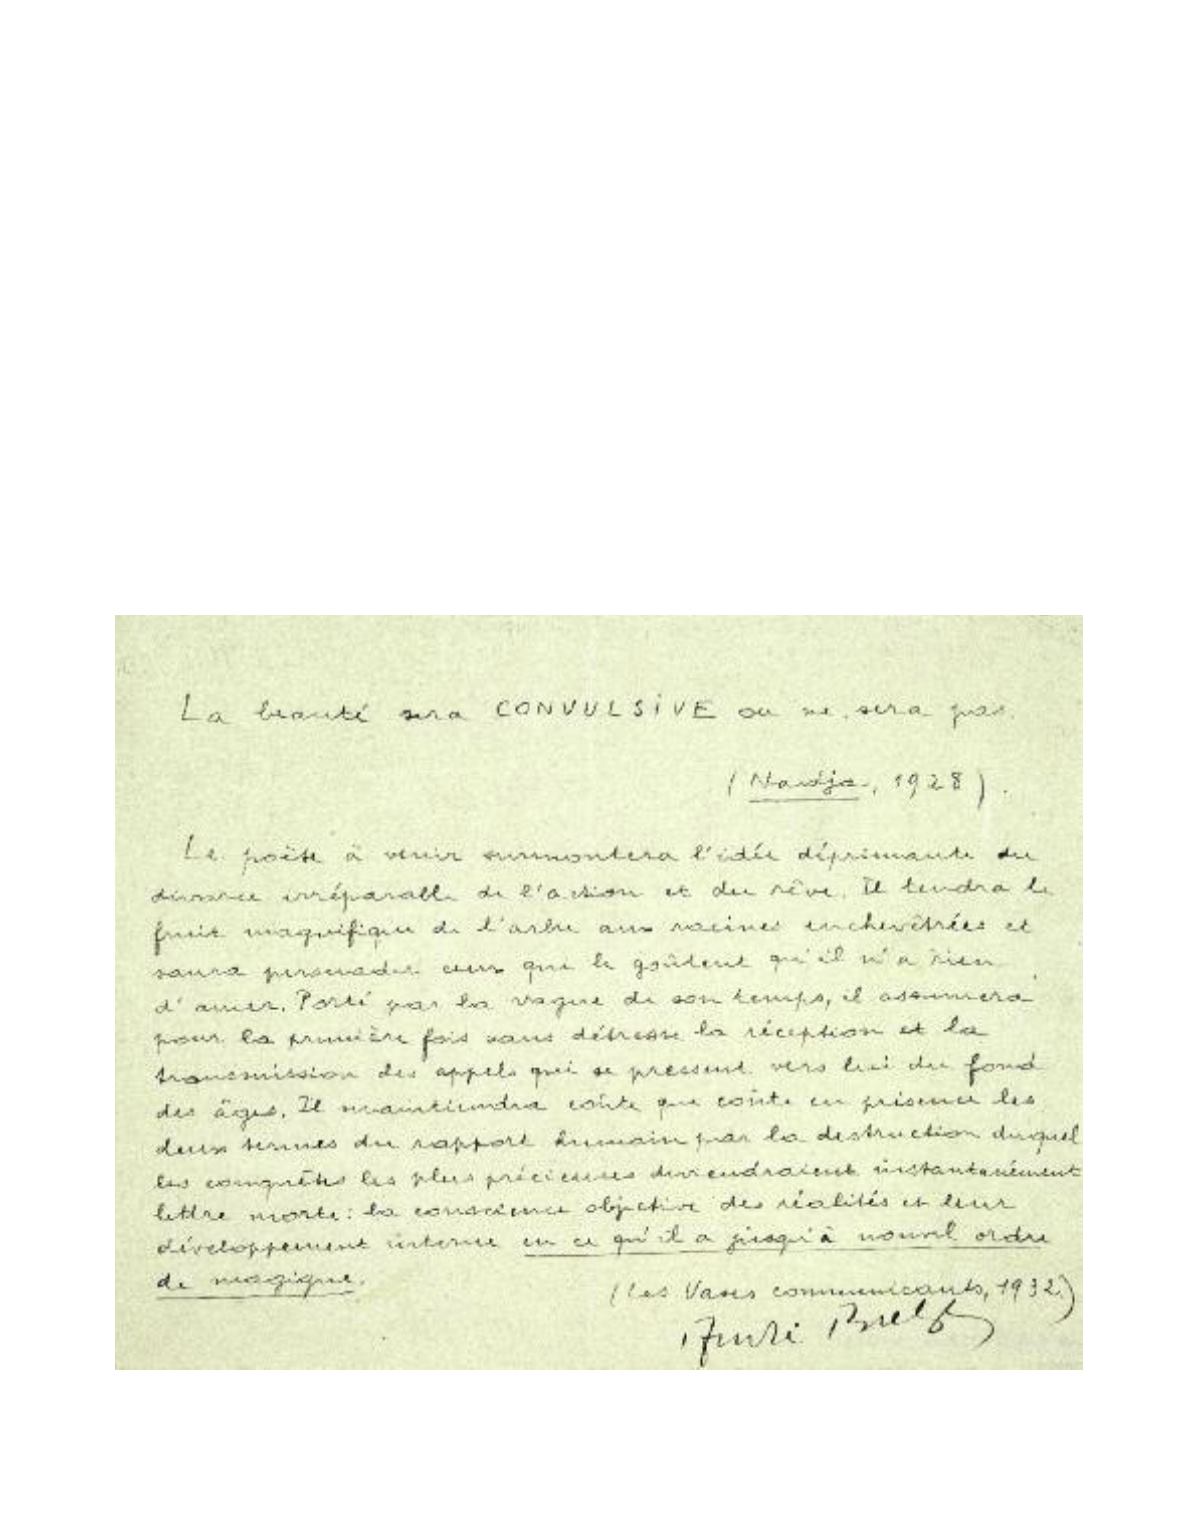 La beauté sera CONVULSIVE ou ne sera pas.
(Nadja, 1928).
Le poëte à venir surmontera l'idée déprimante du
divorce irréparable de l'action et du rêve. Il tendra le
fruit magnifique de l'arbre aux racines enchevêtrées et
saura persuader ceux que le goûtent qu'il n'a rien
d'amer. Porté par la vague de son temps, il assumera
pour la première fois sans détresse la réception et la
transmission des appels qui se pressent vers lui du fond
des âges. Il maintiendra coûte que coûte en présence les
deux termes du rapport humain par la destruction duquel
les conquêtes les plus précieuses deviendraient instantanément
lettre morte : la conscience objective des réalités et leur
développement interne en ce qu'il a jusqu'à nouvel ordre
de magique.
(Les Vases communicants, 1932.)
André Breton